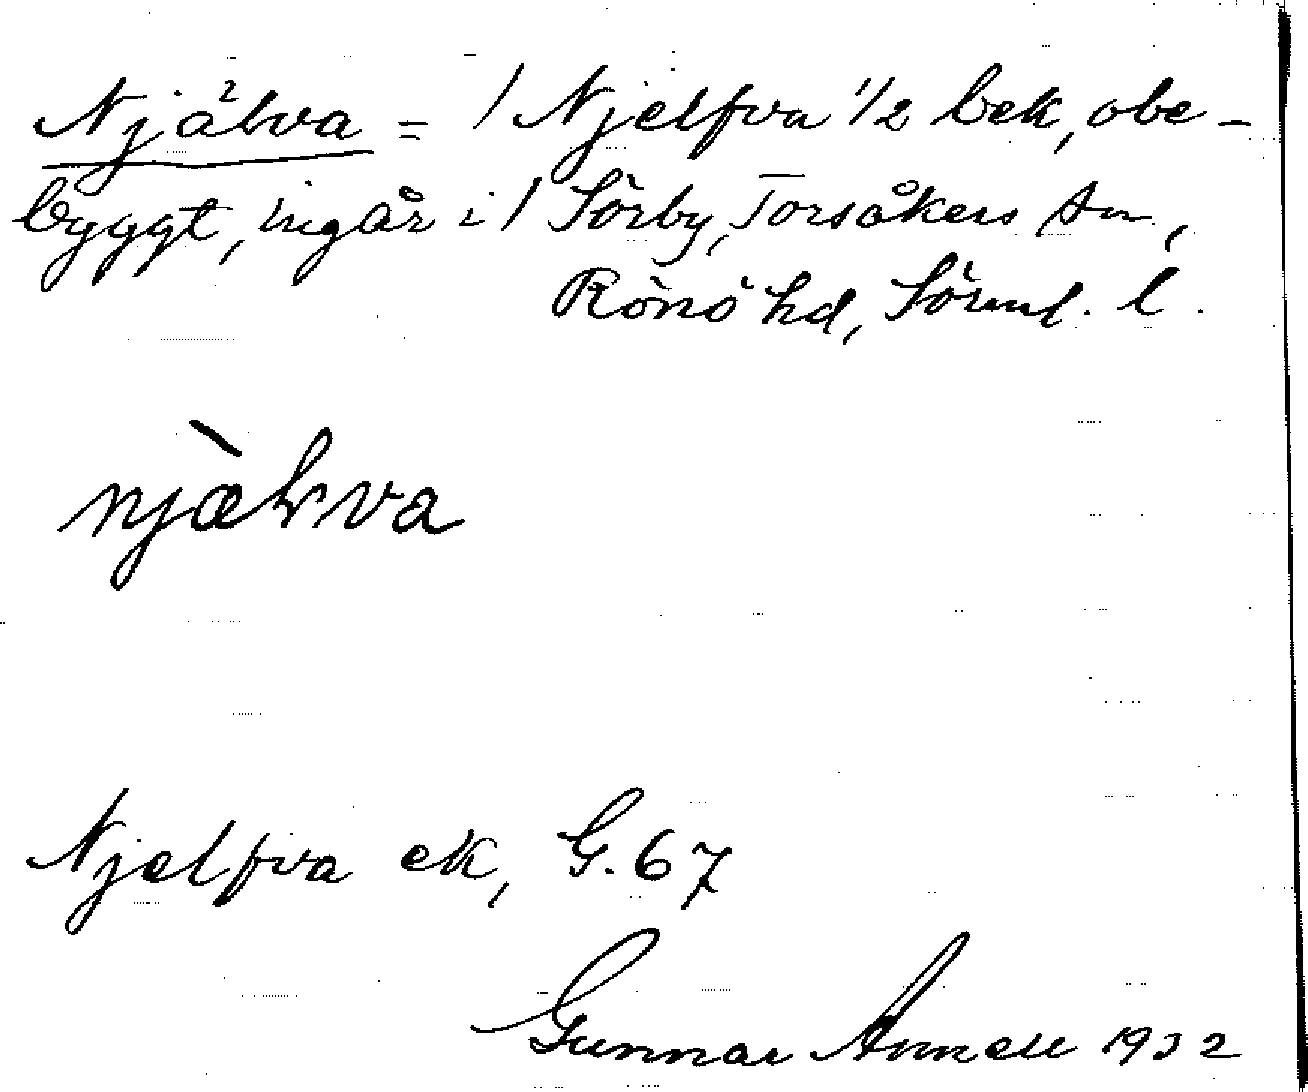 Njälva = / Njelfva 1/2 bek, obe-
byggt, ingår i / Sörby, Torsåkers sn,
Rönö hd, Sörml. l.
njælva
Njelfva ek, G. 67
Gunnar Annell 1932